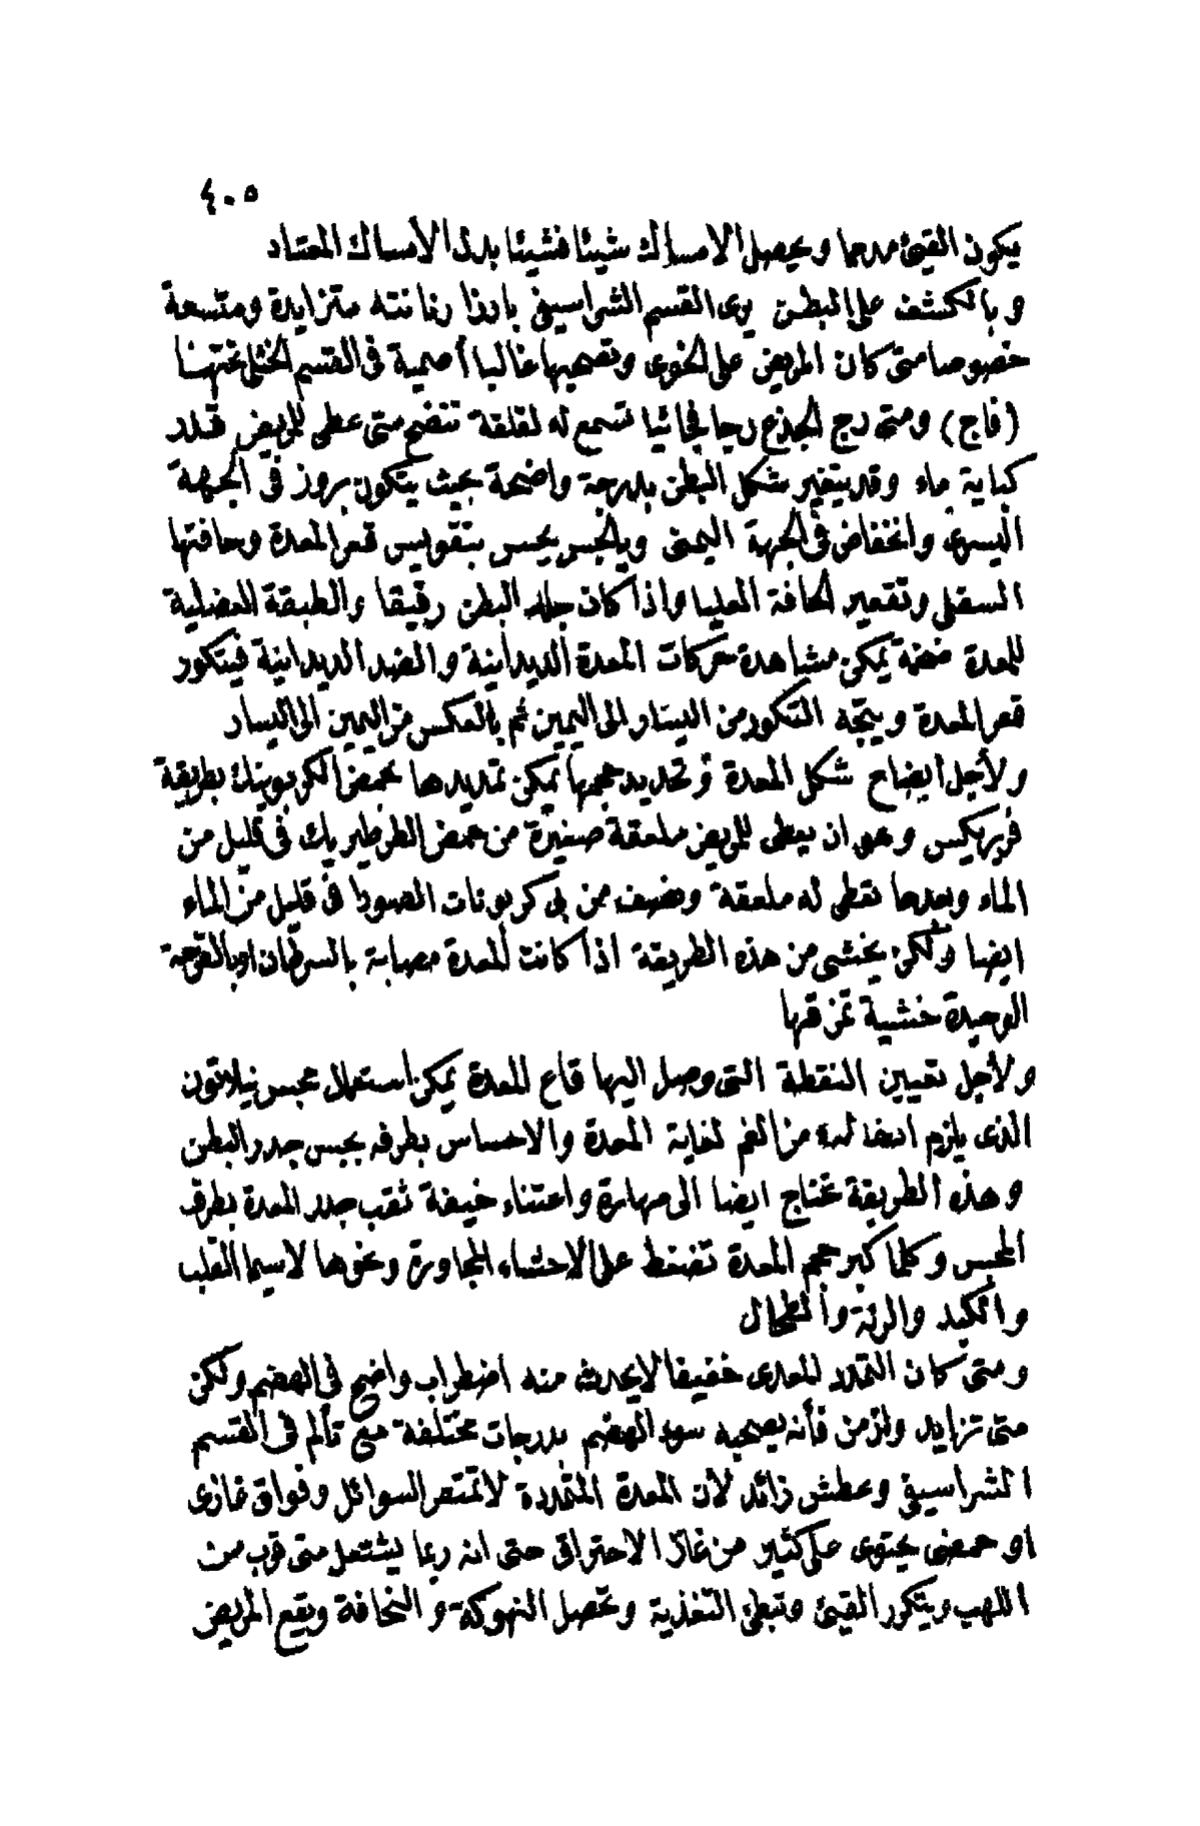 ٤٠٥
يكون القيئ مدما ويحصل الامساك شيئا فشيئا بدل الأمساك المعتاد
وبالكشف على البطن يرى القسم الشراسيفى بارزا رنانته متزايدة ومتسعة
خصوصا متى كان المريض على الخوى وتصحبها غالبا أصمية فى القسم الخثلى
(فاج) ومتى رج الجذع رجا فجائيا تسمع له لقلقة تتضح متى عطى للمريض قدر
كباية ماء وقد يتغير شكل البطن بدرجة واضحة بحيث يتكون بروز فى الجهة
اليسرى وانخفاض فى الجهة اليمنى وبالجس يحس بتقويس قعر المعدة وحافتها
السفلى وتقعير الحافة العليا واذا كان جلد البطن رقيقا والطبقة العضلية
للمعدة ضخمة يمكن مشاهدة حركات المعدة الديدانية والضد الديدانية فيتكور
قعر المعدة ويتجه التكور من اليسار الى اليمين ثم بالعكس من اليمين الى اليسار
ولأجل ايضاح شكل المعدة وتحديد حجمها يمكن تمديدها بحمض الكربونيك بطريقة
فريريكس وهى ان يعطى للمريض ملعقة صغيرة من حمض الطرطيريك فى قليل من
الماء وبعدها تعطى له ملعقة ونصف من بى كربونات الصودا فى قليل من الماء
ايضا ولكن يخشى من هذه الطريقة اذا كانت المعدة مصابة بالسرطان او بالقرحة
الوحيدة خشية تمزقها
ولأجل تعيين النقطة التى وصل اليها قاع المعدة يمكن استعمال مجس نيلاتون
الذى يلزم ادخاله من الفم لغاية المعدة والاحساس بطرفه بجس جدر البطن
وهذه الطريقة تحتاج ايضا الى مهارة واعتناء خيفة ثقب جدر المعدة بطرف
المجس وكلما كبر حجم المعدة تضغط على الاحشاء المجاورة ونحوها لاسيما القلب
والكبد والرئة والطحال
ومتى كان التمدد المعدى خفيفا لا يحدث منه اضطراب واضح فى الهضم ولكن
متى تزايد وازمن فأنه يصحبه سوء الهضم بدرجات مختلفة مع تألم فى القسم
الشراسيفى وعطش زائد لأن المعدة المتمددة لا تمتص السوائل وفواق غازى
او حمضى يحتوى على كثير من غاز الاحتراق حتى انه ربما يشتعل متى قرب من
اللهب ويتكرر القيئ وتبطئ التغذية وتحصل النهوكة والنحافة ويقع المريض